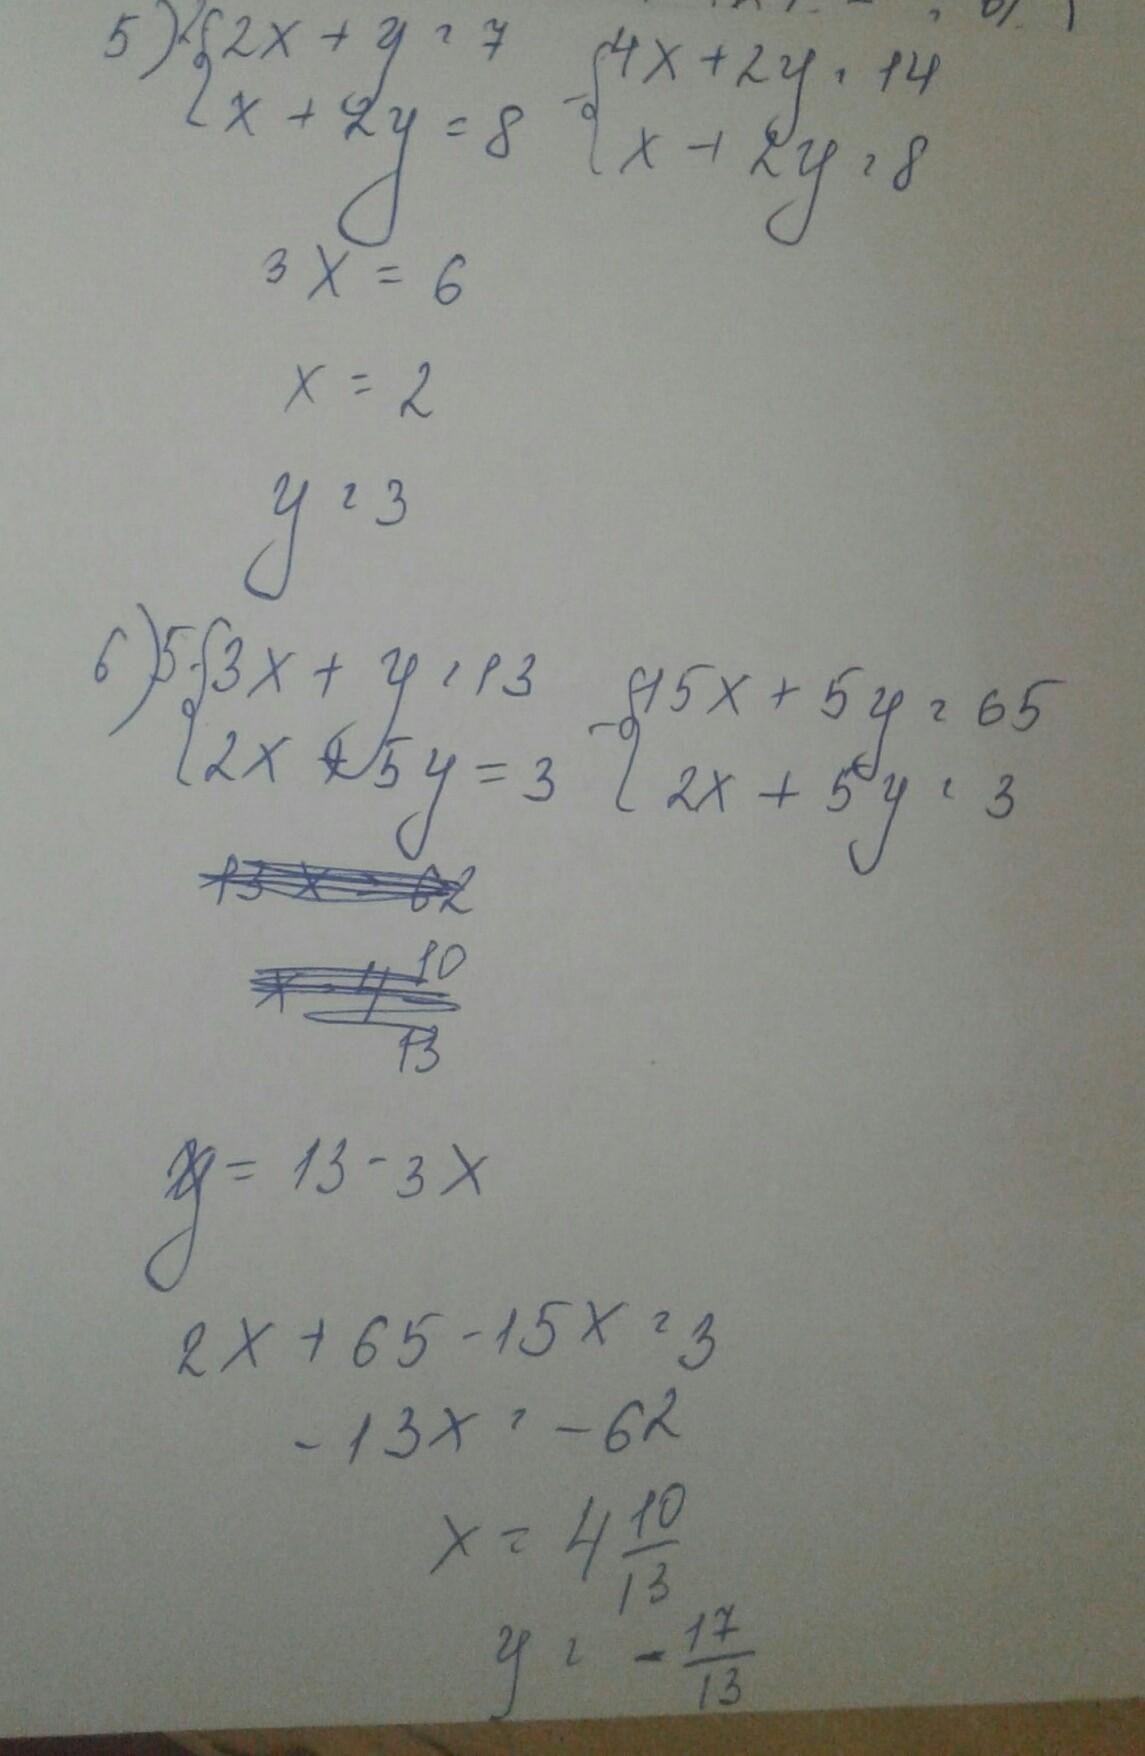 5) 2{2x + y = 7   -{4x + 2y = 14
{x + 2y = 8   {x + 2y = 8
3x = 6
x = 2
y = 3
6) 5{3x + y = 13   -{15x + 5y = 65
{2x + 5y = 3   {2x + 5y = 3
13x = 62
x = 4 10/13
y = 13 - 3x
2x + 65 - 15x = 3
-13x = -62
x = 4 10/13
y = - 17/13